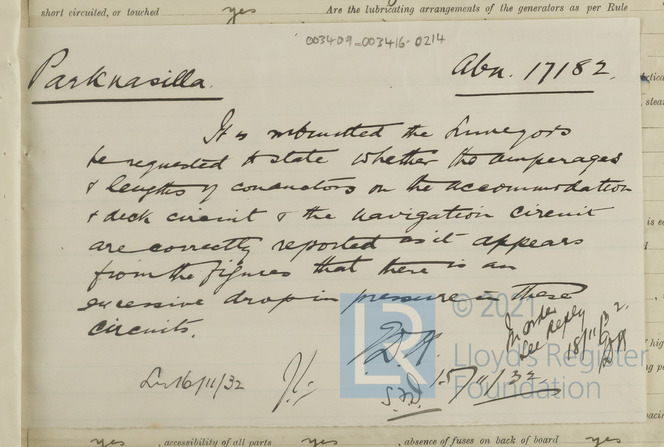 short circuited, or touched yes Are the lubricating arrangements of the generators as per Rule
003409-003416-0214
Parknasilla. Abn. 17182.
It is submitted the Surveyors
be requested to state whether the amperages
& lengths of conductors on the accommodation
& deck circuit & the navigation circuit
are correctly reported as it appears
from the figures that there is an
excessive drop in pressure in these
circuits.
© 2021
Lloyd's Register
Foundation
LR
In order
See Reply
18/11/32.
15/11/32
Lr 16/11/32
yes , accessibility of all parts yes , absence of fuses on back of board yes